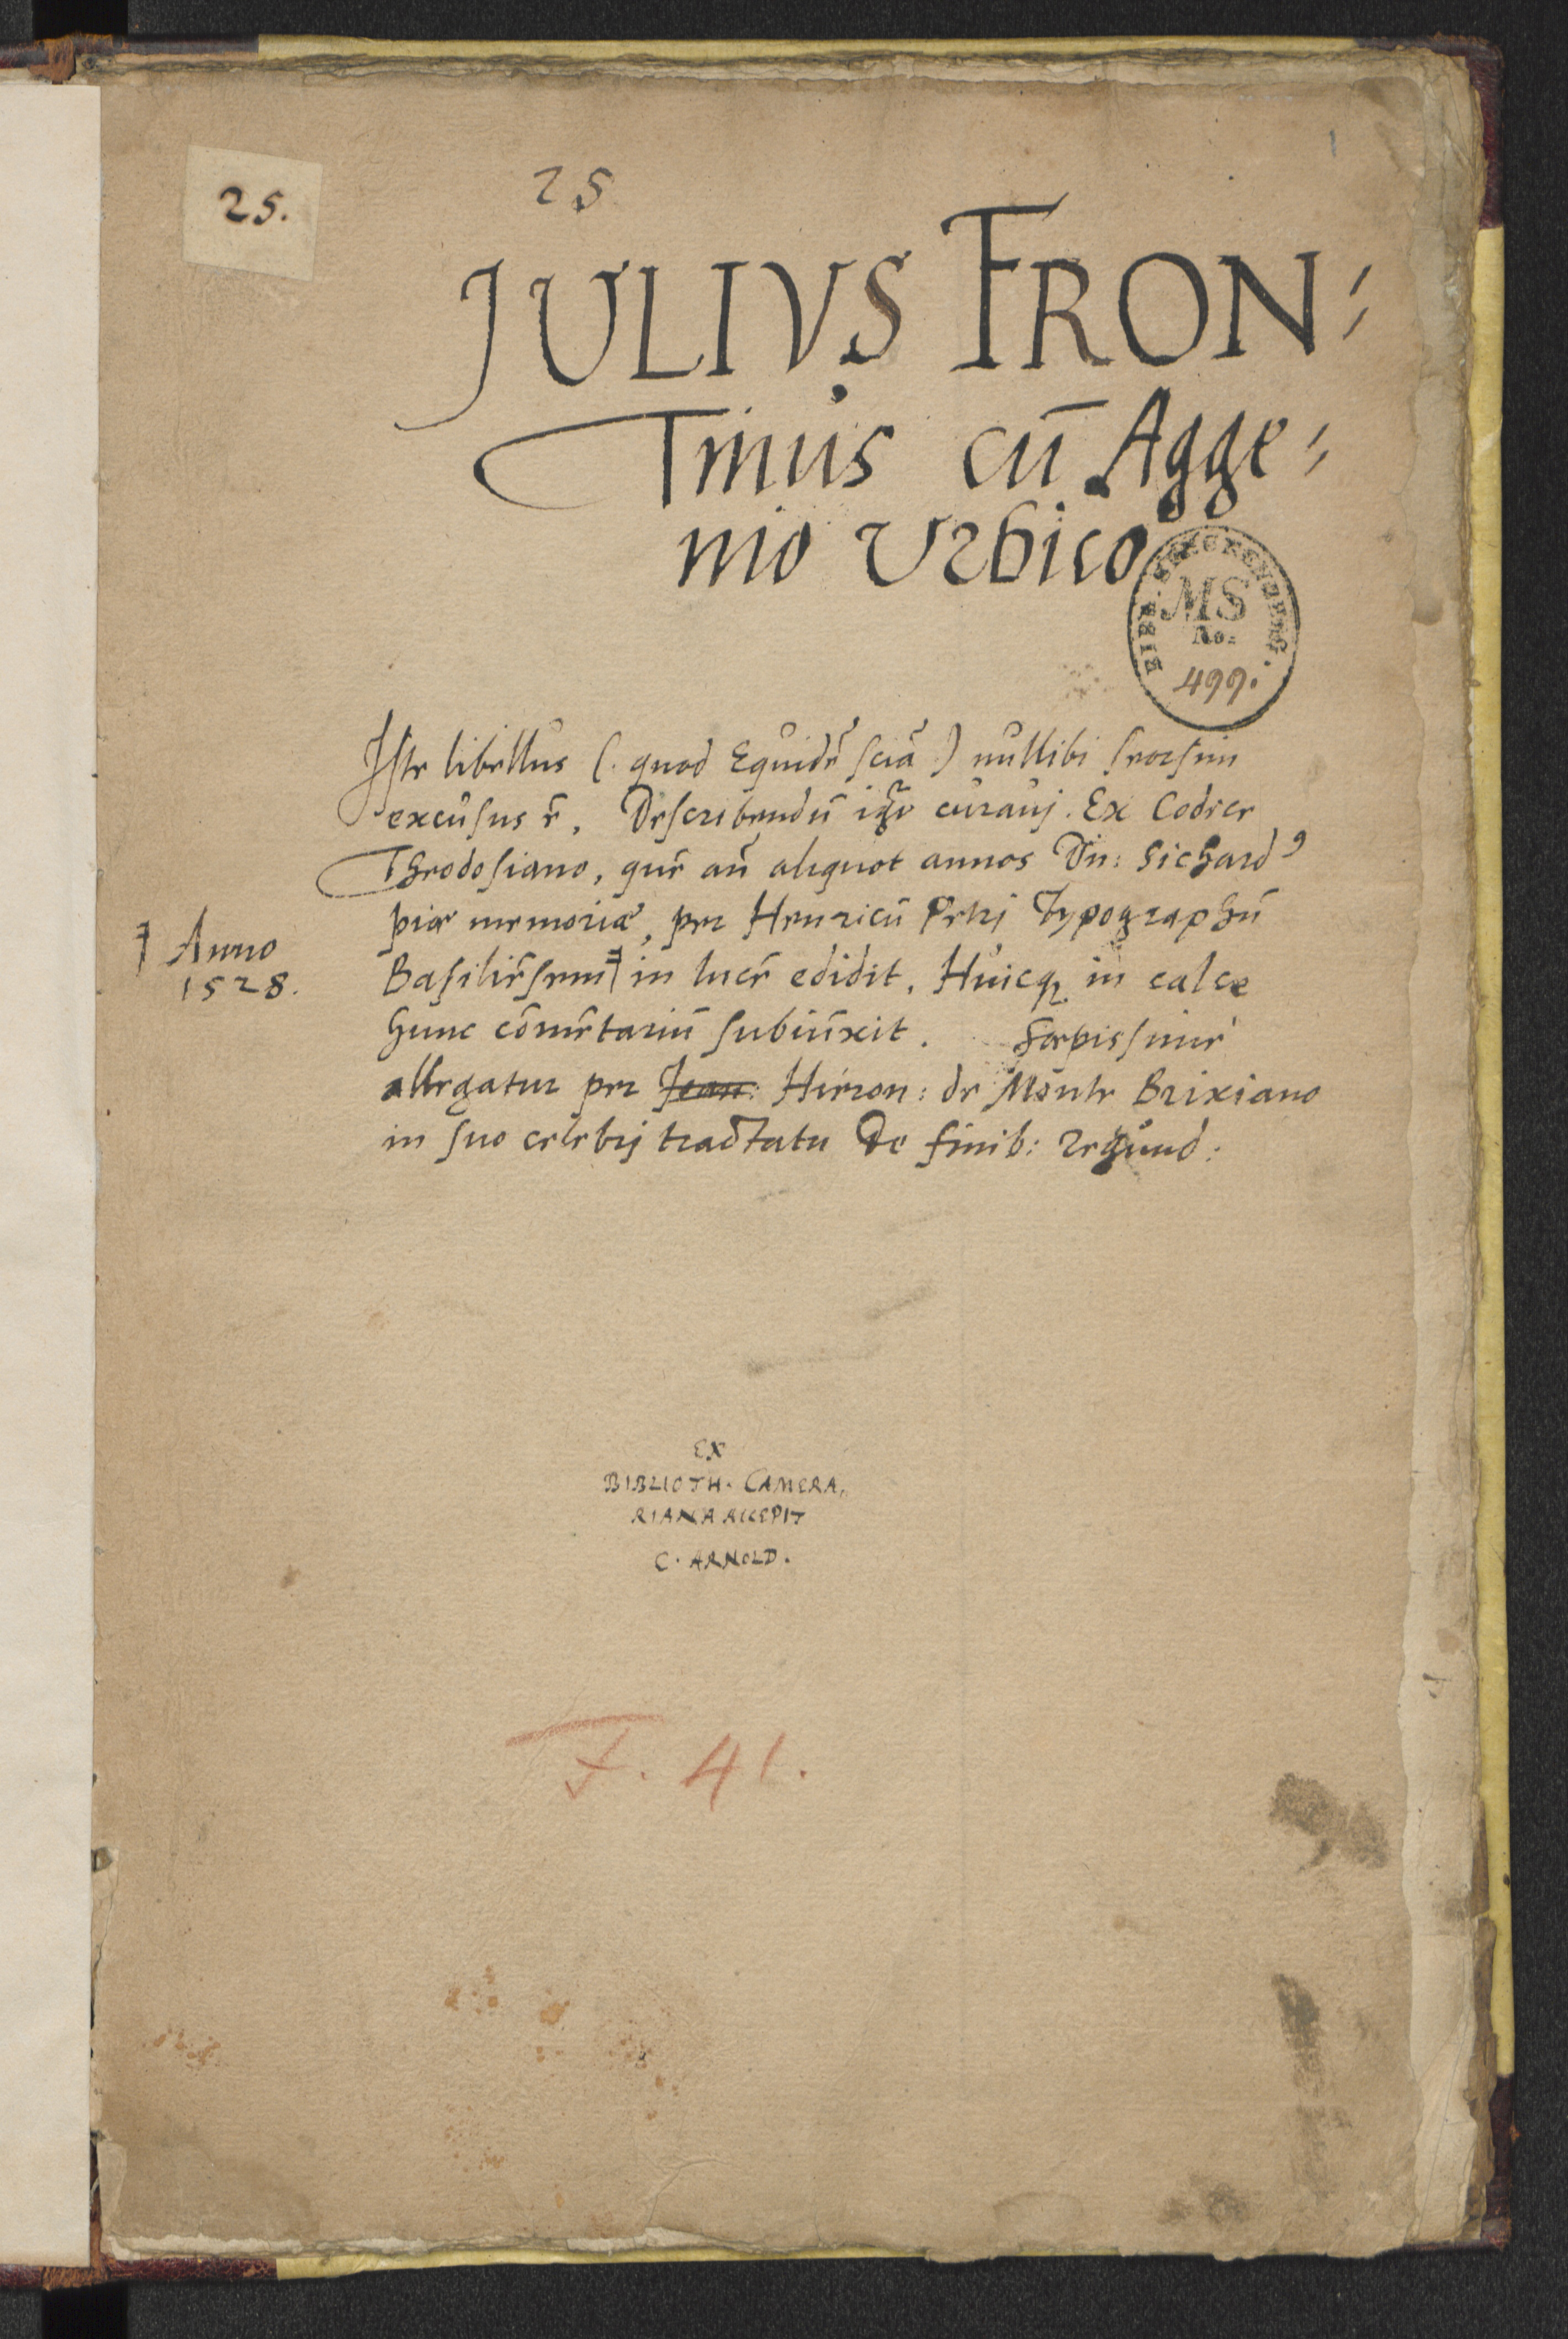 25.
25
1
JULIVS FRON:
Tinus cū Agge:
nio Vrbico
BIBL. SENCKENBERG.
MS
No.
499.
Iste libellus (. quod Equidē sciā.) nullibi seorsim
excusus ē. Describendū igr curavj. Ex Codice
Theodosiano, quē añ aliquot annos Dn: Sichard⁹
piæ memoriæ, per Henricū Petrj Typographū
Basiliēsem in lucē edidit. Huicq in calce
Anno
1528.
hunc cōmētariū subiūxit. Sæpissimè
allegatur per Hieron: de Monte Brixiano
in suo celebrj tractatu De finib: regund:
EX
BIBLIOTH. CAMERA,
RIANA ACCEPIT
C. ARNOLD.
F. 41.